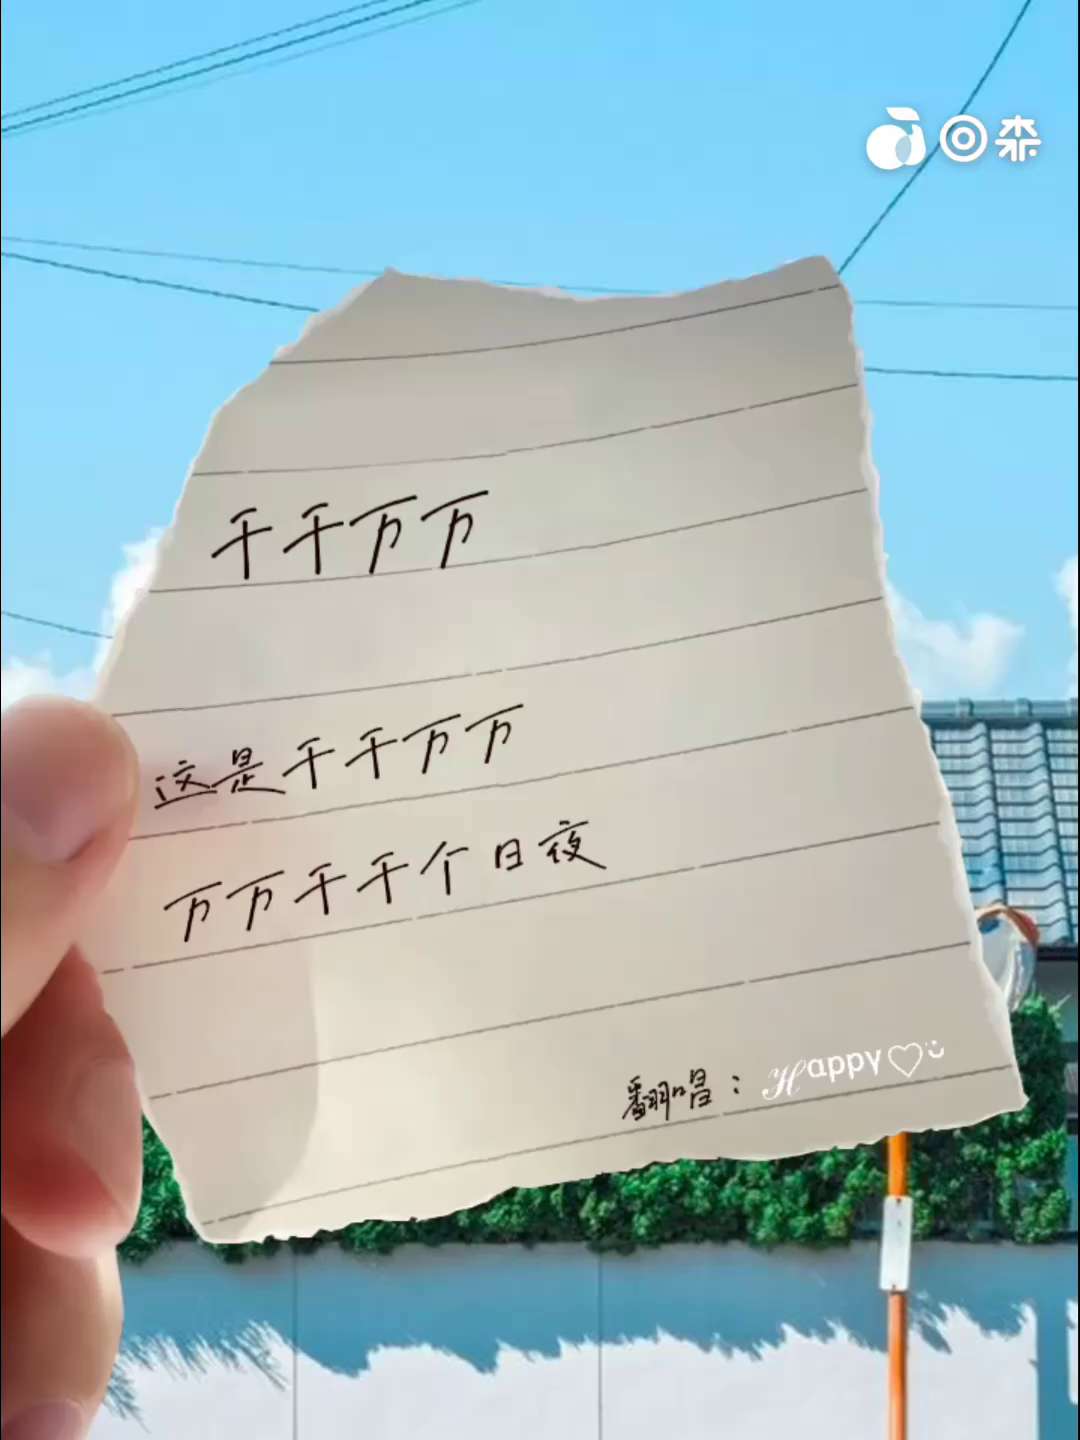 回森
千千万万
这是千千万万
万万千千个日夜
翻唱：Happy♡